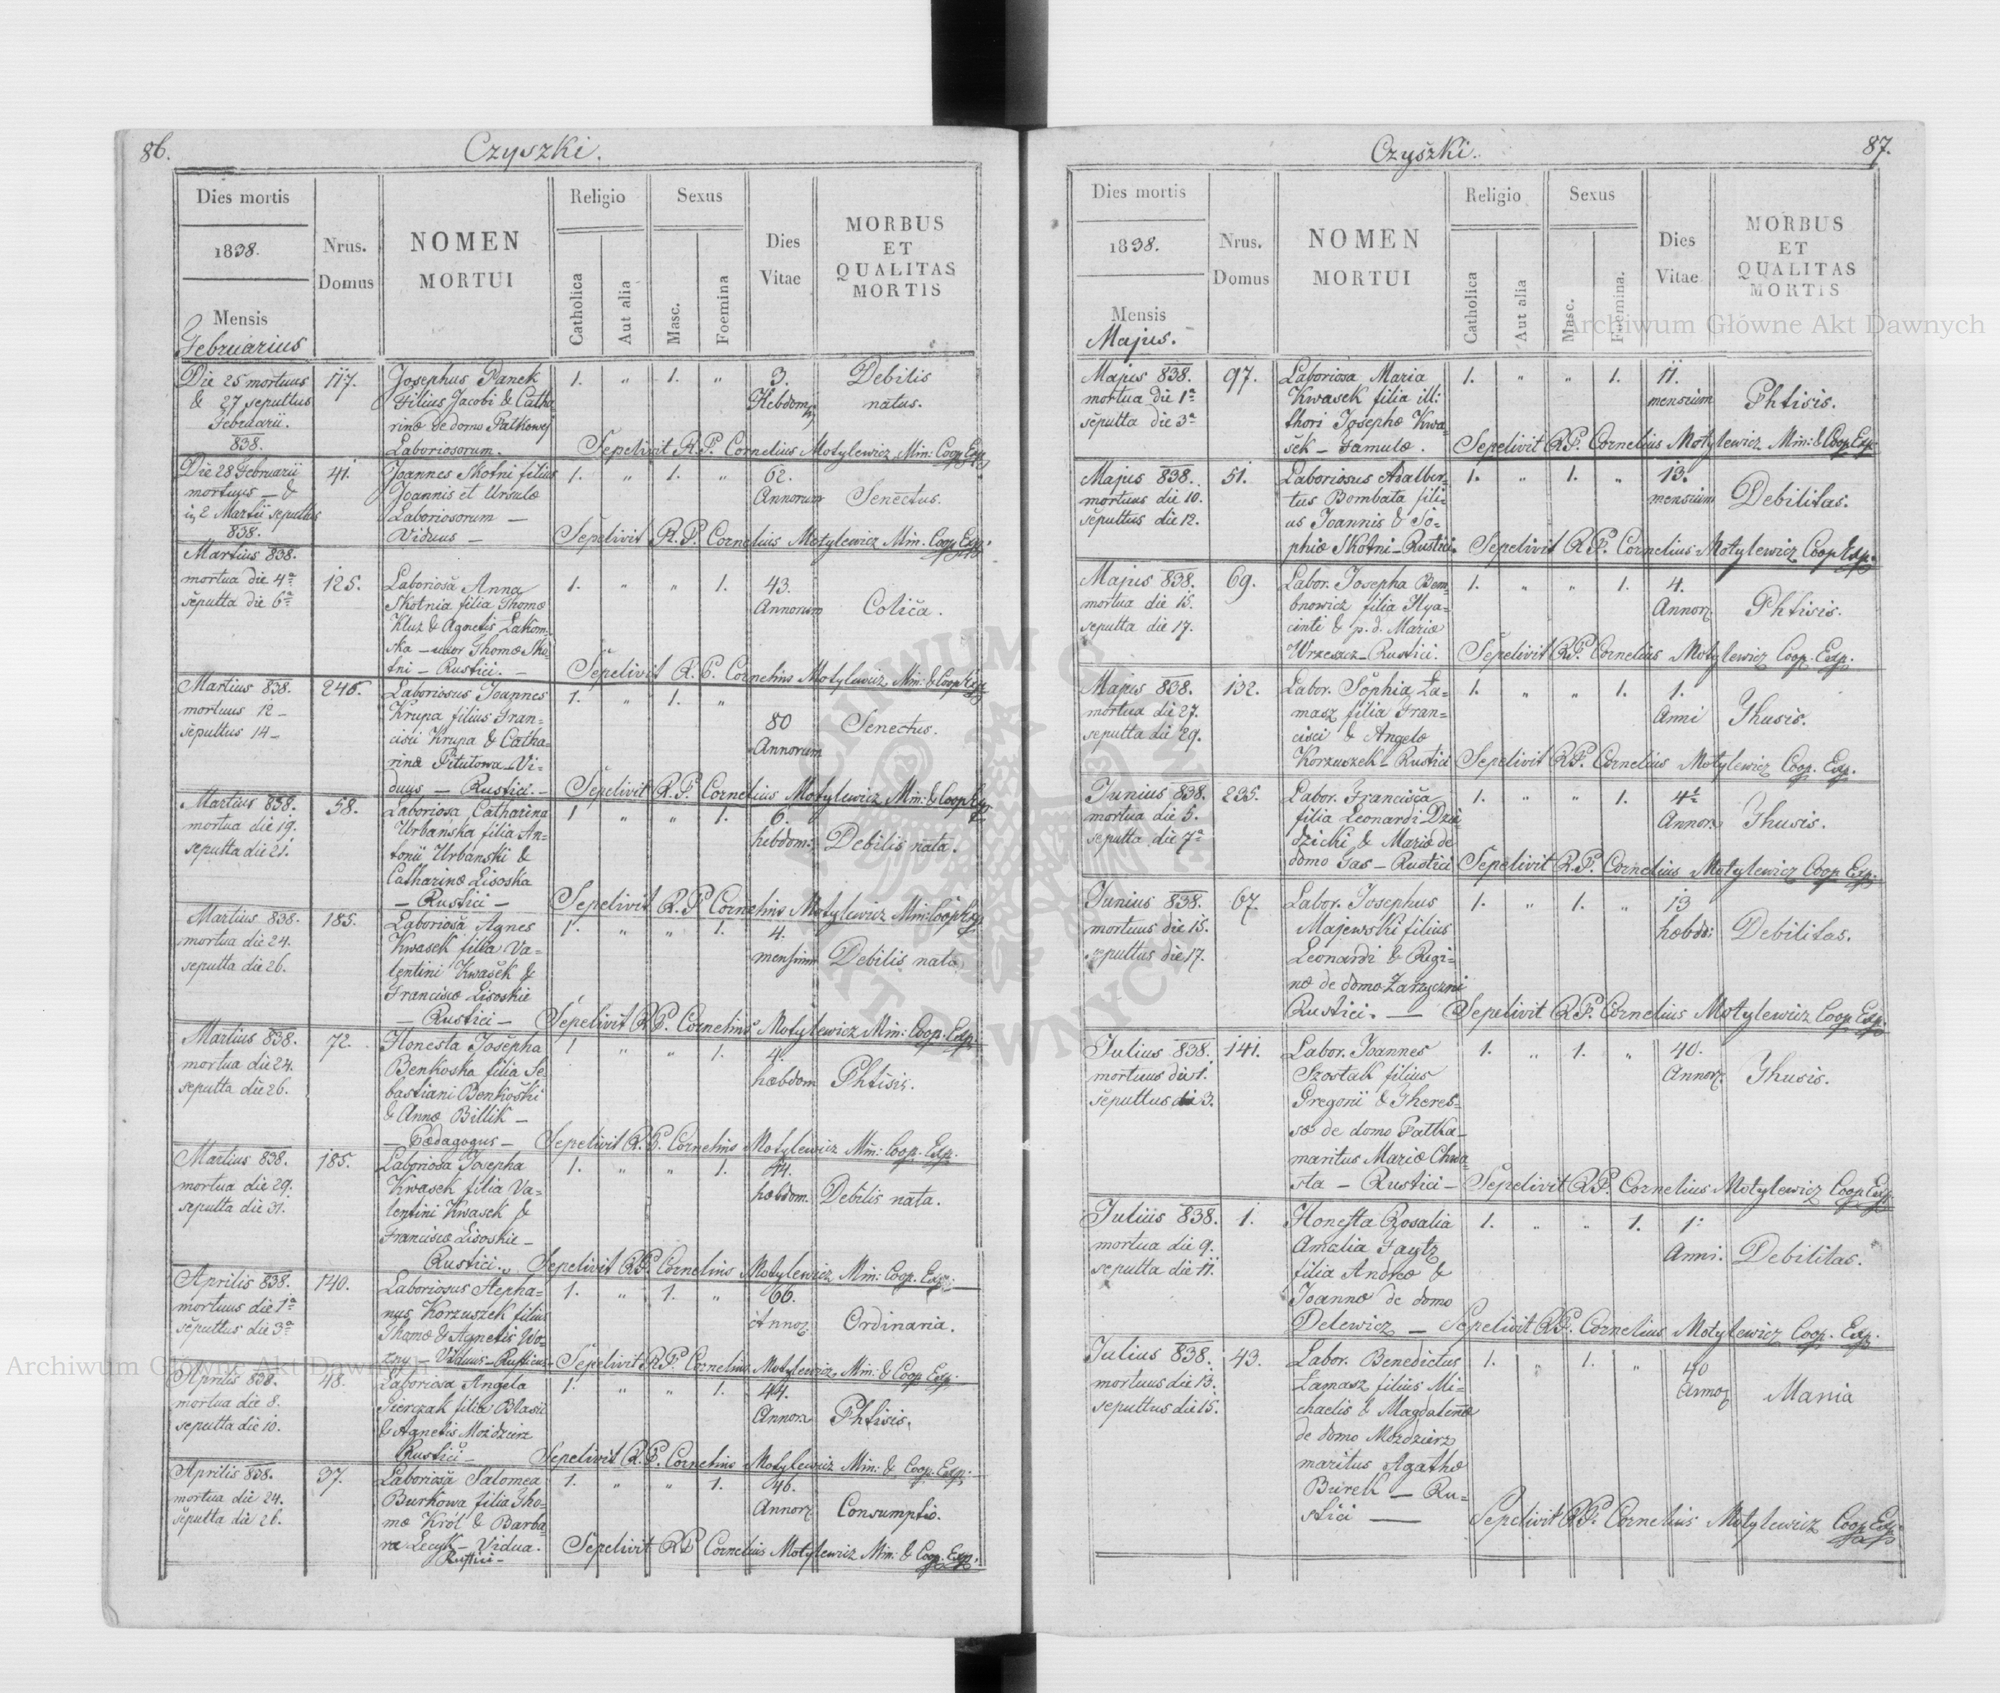 86.
Czyszki.
Dies mortis
1838.
Mensis
Februarius
Nrus.
Domus
NOMEN
MORTUI
Religio
Catholica
Aut alia
Sexus
Masc.
Foemina
Dies
Vitae
MORBUS
ET
QUALITAS
MORTIS
Die 25 mortuus
& 27 sepultus
Februarii.
838.
117.
Josephus Panek
Filius Jacobi & Catha-
rinæ de domo Patkowej
Laboriosorum.
1. " 1. "
3.
Hebdom
Debilis
natus.
Sepelivit R. P. Cornelius Motylewicz Min: Coop Exp
Die 28 Februarii
mortuus — &
2 Martii sepultus
838.
41.
Joannes Skotni filius
Joannis et Ursulæ
Laboriosorum —
Viduus —
1. " 1. "
62.
Annorum
Senectus.
Sepelivit R. P. Cornelius Motylewicz Min. Coop Exp.
Martius 838.
mortua die 4ª
sepulta die 6ª
125.
Laboriosa Anna
Skotnia filia Thomæ
Kluz & Agnetis Łakom-
ska — uxor Thomæ Sko-
tni — Rustici. —
1. " " 1.
43.
Annorum
Colica.
Sepelivit R. P. Cornelius Motylewicz Min: & Coop Exp
Martius 838.
mortuus 12 —
sepultus 14 —
246.
Laboriosus Joannes
Krupa filius Fran-
cisci Krupa & Catha-
rinæ Pitutowa — Vi-
duus — Rustici. —
1. " 1. "
80
Annorum
Senectus.
Sepelivit R. P. Cornelius Motylewicz Min. & Coop Exp
Martius 838.
mortua die 19.
sepulta die 21.
58.
Laboriosa Catharina
Urbanska filia An-
tonii Urbanski &
Catharinæ Lisoska
— Rustici —
1 " " 1.
6.
hebdom:
Debilis nata.
Sepelivit R. P Cornelius Motylewicz Min Coop Exp
Martius 838.
mortua die 24.
sepulta die 26.
185.
Laboriosa Agnes
Kwasek filia Va-
lentini Kwasek &
Franciscæ Lisoskie
— Rustici —
1. " " 1.
4.
mensium
Debilis nata
Sepelivit R P. Cornelius Motylewicz Min: Coop. Exp:
Martius 838.
mortua die 24.
sepulta die 26.
72.
Honesta Josepha
Benkoska filia Se
bastiani Benkoski
& Annæ Billik —
— Pædagogus —
1 " " 1.
hæbdom
Phtisis.
Sepelivit R. P. Cornelius Motylewicz Min: Coop. Exp.
Martius 838.
mortua die 29.
sepulta die 31.
185.
Laboriosa Josepha
Kwasek filia Va-
lentini Kwasek &
Franciscæ Lisoskie —
Rustici.
1. " " 1.
hæbdom.
Debilis nata.
Sepelivit R P. Cornelius Motylewicz Min: Coop. Exp:
Aprilis 838.
mortuus die 1ª
sepultus die 3ª
140.
Laboriosus Stepha-
nus Korzuszek filius
Thomæ & Agnetis Wo-
zny — Viduus — Rusticus —
1. " 1. "
66.
Annor.
Ordinaria.
Sepelivit R. P. Cornelius Motylewicz Min: & Coop Exp.
Aprilis 838.
mortua die 8.
sepulta die 10.
48.
Laboriosa Angela
filia Blasii
& Agnetis Mozdzierz
Rustici —
1. " " 1.
44.
Annor.
Phtisis.
Sepelivit R. P. Cornelius Motylewicz Min: & Coop. Exp:
Aprilis 838.
mortua die 24.
sepulta die 26.
37.
Laboriosa Salomea
Burkowa filia Tho-
mæ Król & Barba-
ræ Lecyk — Vidua.
Rustici —
1. " " 1.
46.
Annor.
Consumptio.
Sepelivit R P Cornelius Motylewicz Min: & Coop. Exp.
87.
Czyszki.
Dies mortis
1838.
Mensis
Majus.
Nrus.
Domus
NOMEN
MORTUI
Religio
Catholica
Aut alia
Sexus
Masc.
Foemina.
Dies
Vitae
MORBUS
ET
QUALITAS
MORTIS
Majus 838.
mortua die 1ª
sepulta die 3ª
97.
Laboriosa Maria
Kwasek filia ill:
thori Josephæ Kwa-
sek — Famulæ.
1. " " 1.
11.
mensium
Phtisis.
Sepelivit R P. Cornelius Motylewicz Min: & Coop Exp:
Majus 838.
mortuus die 10.
sepultus die 12.
51.
Laboriosus Adalber-
tus Bombata fili-
us Joannis & So-
phiæ Skotni — Rustici.
1. " 1. "
13.
mensium
Debilitas.
Sepelivit R P. Cornelius Motylewicz Coop Exp.
Majus 838.
mortua die 15.
sepulta die 17.
69.
Labor. Josepha Bem-
bnowicz filia Hya-
cinti & p. d. Mariæ
Wrzeszcz — Rustici.
1. " " 1.
4.
Annor.
Phtisis.
Sepelivit R P. Cornelius Motylewicz Coop. Exp.
Majus 838.
mortua die 27.
sepulta die 29.
132.
Labor. Sophia Ła-
masz filia Fran-
cisci & Angelæ
Korzuszek — Rustici
1. " " 1.
1.
Anni
Thusis.
Sepelivit R P. Cornelius Motylewicz Coop. Exp.
Junius 838.
mortua die 5.
sepulta die 7ª
235.
Labor. Francisca
filia Leonardi Dzie-
dzicki & Mariæ de
domo Gas — Rustici
1. " " 1.
Annor.
Thusis.
Sepelivit R. P. Cornelius Motylewicz Coop Exp.
Junius 838.
mortuus die 15.
sepultus die 17.
67.
Labor. Josephus
Majewski filius
Leonardi & Regi-
næ de domo Zarzyczni
Rustici. —
1. " 1. "
13
hæbdo:
Debilitas.
Sepelivit R P. Cornelius Motylewicz Coop Exp.
Julius 838.
mortuus die 1.
sepultus die 3.
141.
Labor. Joannes
Szostak filius
Gregorii & Theres-
sæ de domo Pattha —
maritus Mariæ Chwa-
sta — Rustici —
1. " 1. "
40.
Annor.
Thusis.
Sepelivit R P. Cornelius Motylewicz Coop Exp.
Julius 838.
mortua die 9.
sepulta die 11.
1.
Honesta Rosalia
Amalia Faytz
filia Andreæ &
Joannæ de domo
Delewicz —
1. " " 1.
1.
Anni.
Debilitas.
Sepelivit R P. Cornelius Motylewicz Coop. Exp.
Julius 838.
mortuus die 13.
sepultus die 15.
43.
Labor. Benedictus
Łamasz filius Mi-
chaelis & Magdalenæ
de domo Mozdzierz
maritus Agathæ
Burek — Ru-
stici —
1. " 1. "
40
Annor.
Mania
Sepelivit R P. Cornelius Motylewicz Coop Exp.
Archiwum Główne Akt Dawnych
Archiwum Główne Akt Dawnych